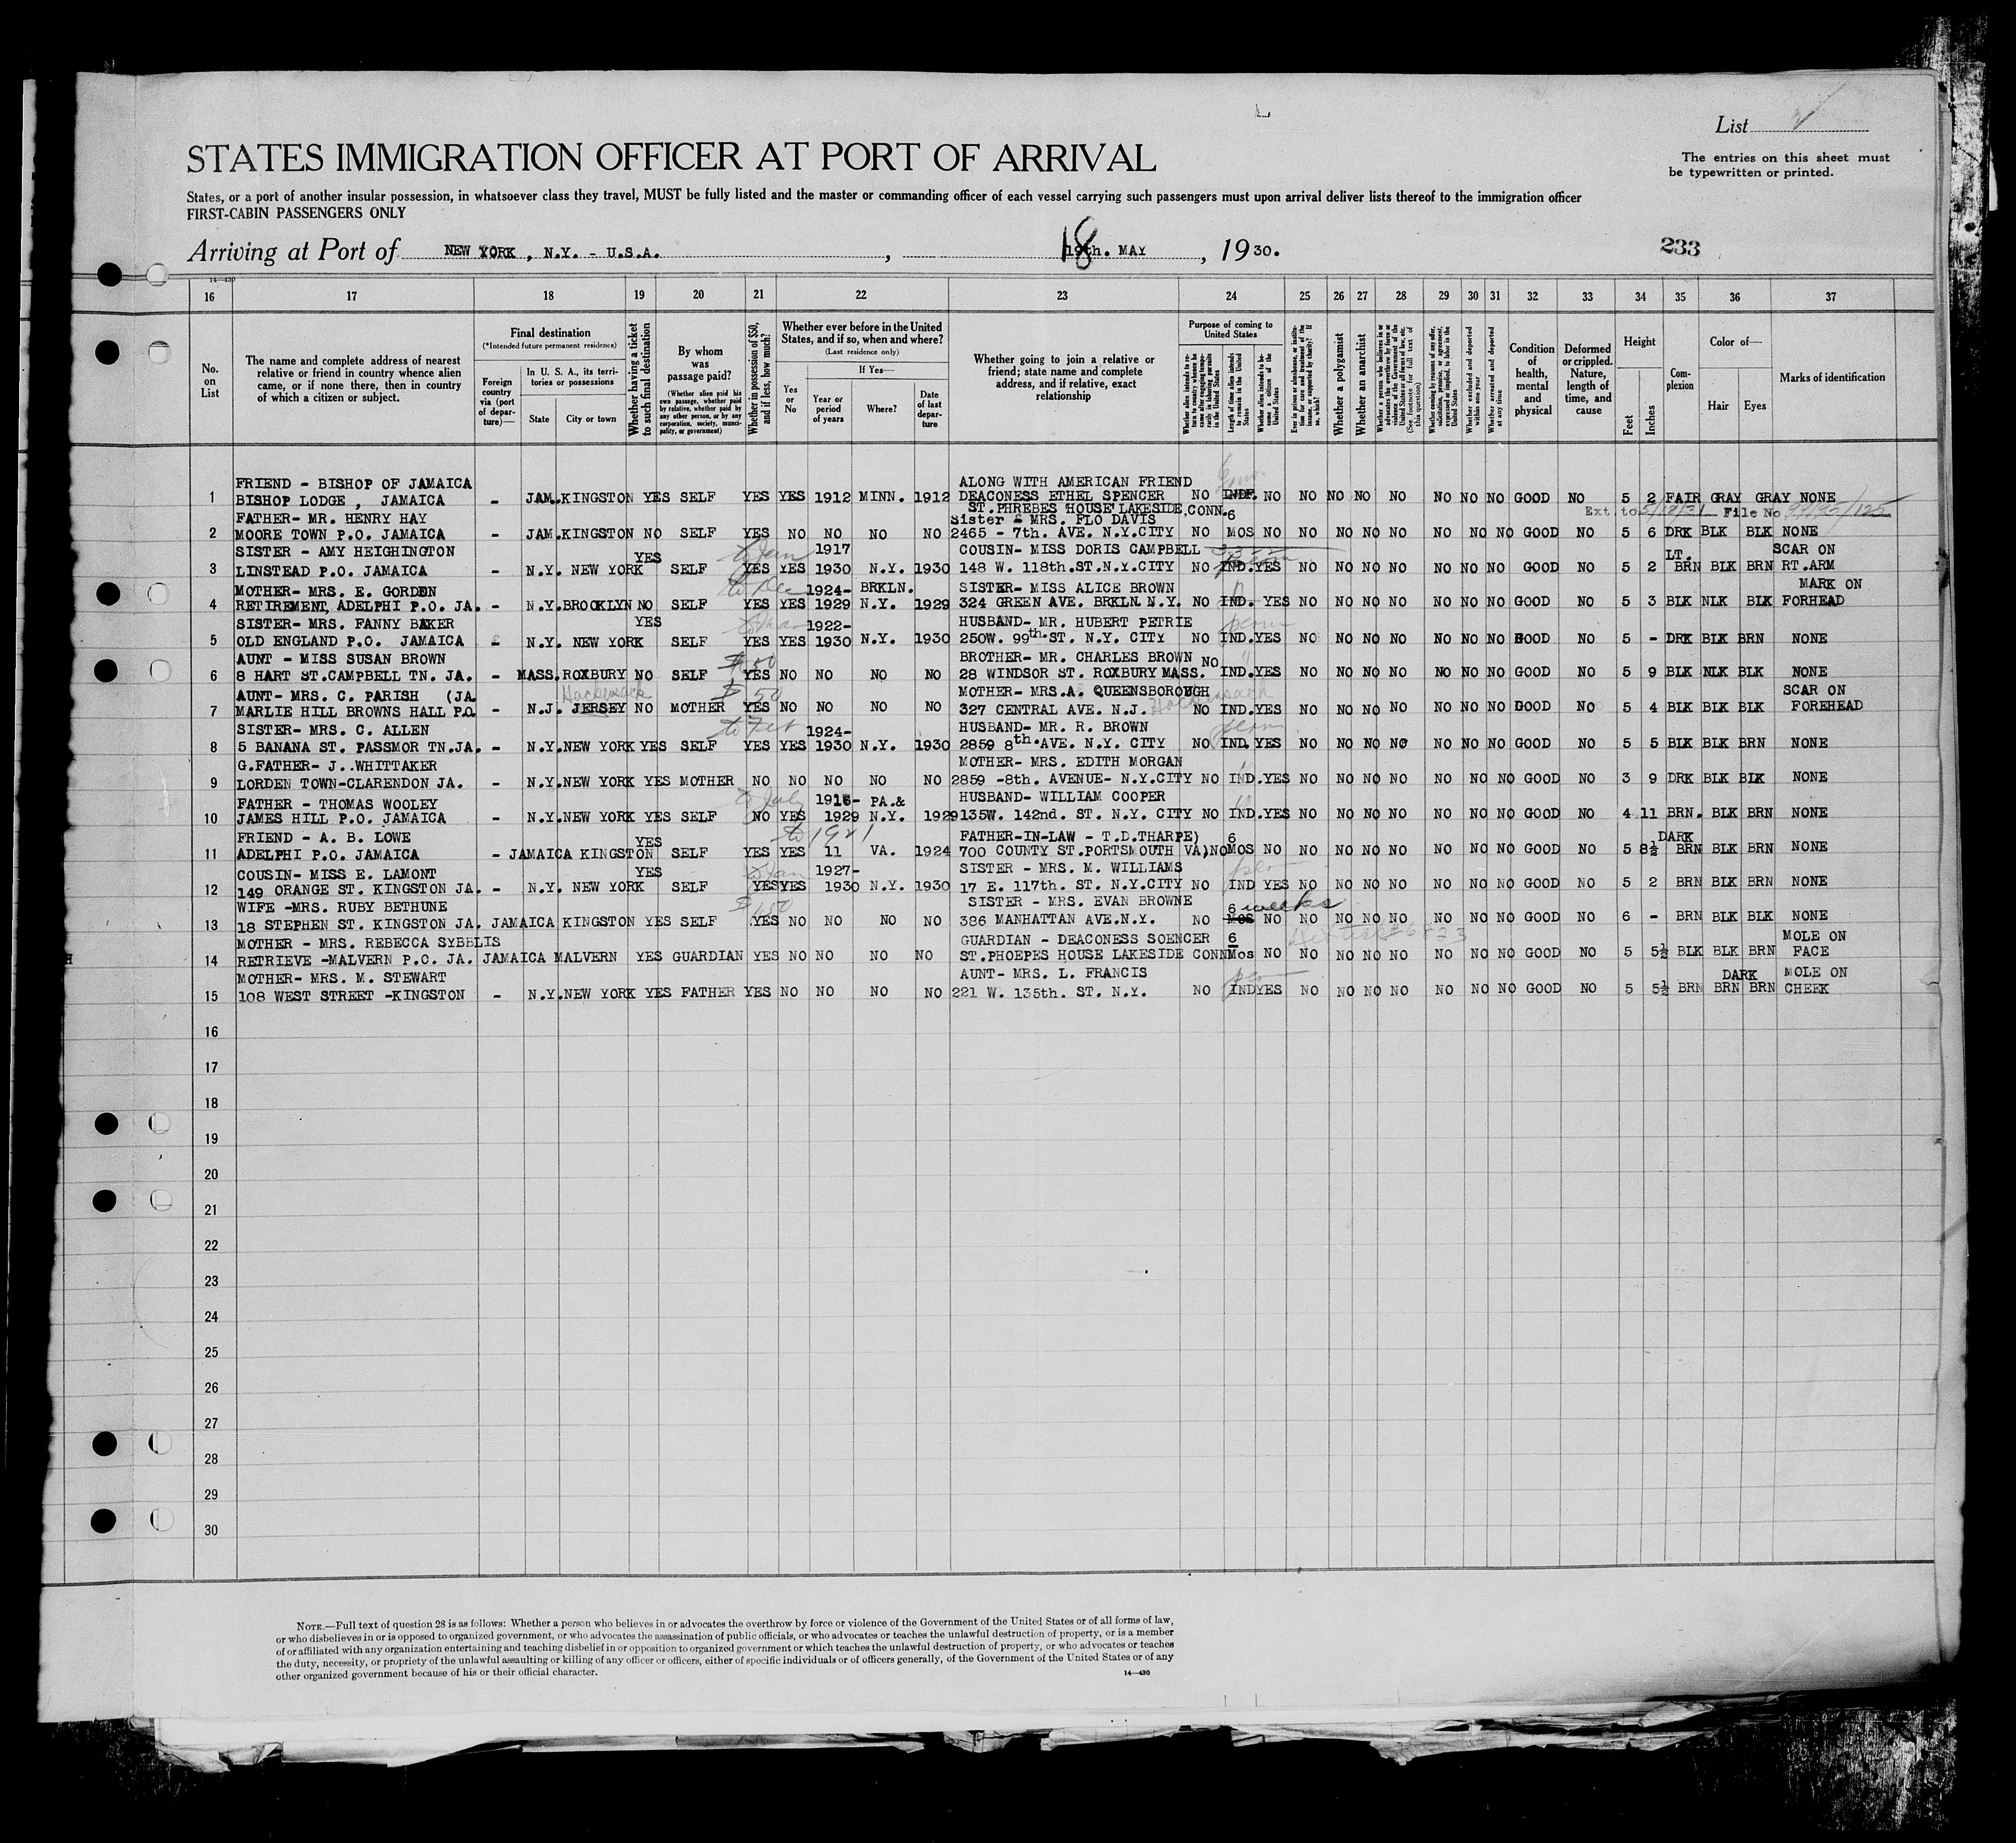 List
STATES IMMIGRATION OFFICER AT PORT OF ARRIVAL
The entries on this sheet must
be typewritten or printed.
States, or a port of another insular possession, in whatsoever class they travel, MUST be fully listed and the master or commanding officer of each vessel carrying such passengers must upon arrival deliver lists thereof to the immigration officer
FIRST-CABIN PASSENGERS ONLY
Arriving at Port of NEW YORK , N.Y. - U.S.A. , 18 19th. MAY , 1930.
233
14—430
16 17 18 19 20 21 22 23 24 25 26 27 28 29 30 31 32 33 34 35 36 37
No. on List
The name and complete address of nearest relative or friend in country whence alien came, or if none there, then in country of which a citizen or subject.
Final destination
(*Intended future permanent residence)
Foreign country via (port of departure)—
In U. S. A., its territories or possessions
State City or town
Whether having a ticket to such final destination
By whom was passage paid?
(Whether alien paid his own passage, whether paid by relative, whether paid by any other person, or by any corporation, society, municipality, or government)
Whether in possession of $50, and if less, how much?
Whether ever before in the United States, and if so, when and where?
(Last residence only)
Yes or No
If Yes—
Year or period of years
Where?
Date of last departure
Whether going to join a relative or friend; state name and complete address, and if relative, exact relationship
Purpose of coming to United States
Length of time alien intends to remain in the United States
Whether alien intends to become a citizen of the United States
Whether a polygamist
Whether an anarchist
Whether excluded and deported within one year
Whether arrested and deported at any time
Condition of health, mental and physical
Deformed or crippled. Nature, length of time, and cause
Height
Feet Inches
Complexion
Color of—
Hair Eyes
Marks of identification
FRIEND - BISHOP OF JAMAICA ALONG WITH AMERICAN FRIEND
1 BISHOP LODGE , JAMAICA - JAM. KINGSTON YES SELF YES YES 1912 MINN. 1912 DEACONESS ETHEL SPENCER NO INDF. NO NO NO NO NO NO NO NO GOOD NO 5 2 FAIR GRAY GRAY NONE
ST.PHREBES HOUSE LAKESIDE,CONN.
Ext. to 5/18/31 File No.
FATHER- MR. HENRY HAY Sister - MRS. FLO DAVIS 6
2 MOORE TOWN P.O. JAMAICA - JAM. KINGSTON NO SELF YES NO NO NO NO 2465 - 7th. AVE. N.Y.CITY NO MOS NO NO NO NO NO NO NO NO GOOD NO 5 6 DRK BLK BLK NONE
SISTER - AMY HEIGHINGTON YES to Jan 1917 COUSIN- MISS DORIS CAMPBELL LT. SCAR ON
3 LINSTEAD P.O. JAMAICA - N.Y. NEW YORK SELF YES YES 1930 N.Y. 1930 148 W. 118th.ST.N.Y.CITY NO IND. YES NO NO NO NO NO NO NO GOOD NO 5 2 BRN BLK BRN RT.ARM
MOTHER- MRS. E. GORDEN to Dec 1924- BRKLN. SISTER- MISS ALICE BROWN MARK ON
4 RETIREMENT, ADELPHI P.O. JA. - N.Y. BROOKLYN NO SELF YES YES 1929 N.Y. 1929 324 GREEN AVE. BRKLN. N.Y. NO IND. YES NO NO NO NO NO NO NO GOOD NO 5 3 BLK NLK BLK FORHEAD
SISTER- MRS. FANNY BAKER YES to Mar 1922- HUSBAND- MR. HUBERT PETRIE perm
5 OLD ENGLAND P.O. JAMAICA - N.Y. NEW YORK SELF YES YES 1930 N.Y. 1930 250W. 99th.ST. N.Y. CITY NO IND. YES NO NO NO NO NO NO NO GOOD NO 5 - DRK BLK BRN NONE
AUNT - MISS SUSAN BROWN $50 BROTHER- MR. CHARLES BROWN
6 8 HART ST.CAMPBELL TN. JA. - MASS. ROXBURY NO SELF YES NO NO NO NO 28 WINDSOR ST. ROXBURY MASS. NO IND. YES NO NO NO NO NO NO NO GOOD NO 5 9 BLK NLK BLK NONE
AUNT- MRS. C. PARISH (JA. Hackensack $50 MOTHER- MRS.A. QUEENSBOROUGH Hackensack SCAR ON
7 MARLIE HILL BROWNS HALL P.O. - N.J. JERSEY NO MOTHER YES NO NO NO NO 327 CENTRAL AVE. N.J. NO IND. YES NO NO NO NO NO NO NO GOOD NO 5 4 BLK BLK BLK FOREHEAD
SISTER- MRS. C. ALLEN to Feb 1924- HUSBAND- MR. R. BROWN perm
8 5 BANANA ST. PASSMOR TN.JA. - N.Y. NEW YORK YES SELF YES YES 1930 N.Y. 1930 2859 8th.AVE. N.Y. CITY NO IND. YES NO NO NO NO NO NO NO GOOD NO 5 5 BLK BLK BRN NONE
G.FATHER- J..WHITTAKER MOTHER- MRS. EDITH MORGAN
9 LORDEN TOWN-CLARENDON JA. - N.Y. NEW YORK YES MOTHER NO NO NO NO NO 2859 -8th. AVENUE- N.Y.CITY NO IND. YES NO NO NO NO NO NO NO GOOD NO 3 9 DRK BLK BLK NONE
FATHER - THOMAS WOOLEY to July 1916- PA.& HUSBAND- WILLIAM COOPER
10 JAMES HILL P.O. JAMAICA - N.Y. NEW YORK YES SELF NO YES 1929 N.Y. 1929 135W. 142nd. ST. N.Y. CITY NO IND. YES NO NO NO NO NO NO NO GOOD NO 4 11 BRN. BLK BRN NONE
FRIEND - A. B. LOWE YES to 1921 FATHER-IN-LAW - T.D.THARPE) 6 DARK
11 ADELPHI P.O. JAMAICA - JAMAICA KINGSTON SELF YES YES 11 VA. 1924 700 COUNTY ST.PORTSMOUTH VA) NO MOS NO NO NO NO NO NO NO NO GOOD NO 5 8½ BRN BLK BRN NONE
COUSIN- MISS E. LAMONT YES to Jan 1927- SISTER - MRS. M. WILLIAMS
12 149 ORANGE ST. KINGSTON JA. - N.Y. NEW YORK SELF YES YES 1930 N.Y. 1930 17 E. 117th. ST. N.Y.CITY NO IND YES NO NO NO NO NO NO NO GOOD NO 5 2 BRN BLK BRN NONE
WIFE -MRS. RUBY BETHUNE $150 SISTER - MRS. EVAN BROWNE 6 weeks
13 18 STEPHEN ST. KINGSTON JA. JAMAICA KINGSTON YES SELF YES NO NO NO NO 386 MANHATTAN AVE.N.Y. NO MOS NO NO NO NO NO NO NO NO GOOD NO 6 - BRN BLK BLK NONE
MOTHER - MRS. REBECCA SYBBLIS GUARDIAN - DEACONESS SOENCER 6 MOLE ON
14 RETRIEVE -MALVERN P.O. JA. JAMAICA MALVERN YES GUARDIAN YES NO NO NO NO ST.PHOEPES HOUSE LAKESIDE CONN Mos NO NO NO NO NO NO NO NO GOOD NO 5 5½ BLK BLK BRN FACE
MOTHER- MRS. M. STEWART AUNT- MRS. L. FRANCIS DARK MOLE ON
15 108 WEST STREET -KINGSTON - N.Y. NEW YORK YES FATHER YES NO NO NO NO 221 W. 135th. ST. N.Y. NO IND YES NO NO NO NO NO NO NO GOOD NO 5 5½ BRN BRN BRN CHEEK
16
17
18
19
20
21
22
23
24
25
26
27
28
29
30
NOTE.—Full text of question 28 is as follows: Whether a person who believes in or advocates the overthrow by force or violence of the Government of the United States or of all forms of law,
or who disbelieves in or is opposed to organized government, or who advocates the assassination of public officials, or who advocates or teaches the unlawful destruction of property, or is a member
of or affiliated with any organization entertaining and teaching disbelief in or opposition to organized government or which teaches the unlawful destruction of property, or who advocates or teaches
the duty, necessity, or propriety of the unlawful assaulting or killing of any officer or officers, either of specific individuals or of officers generally, of the Government of the United States or of any
other organized government because of his or their official character.
14—430